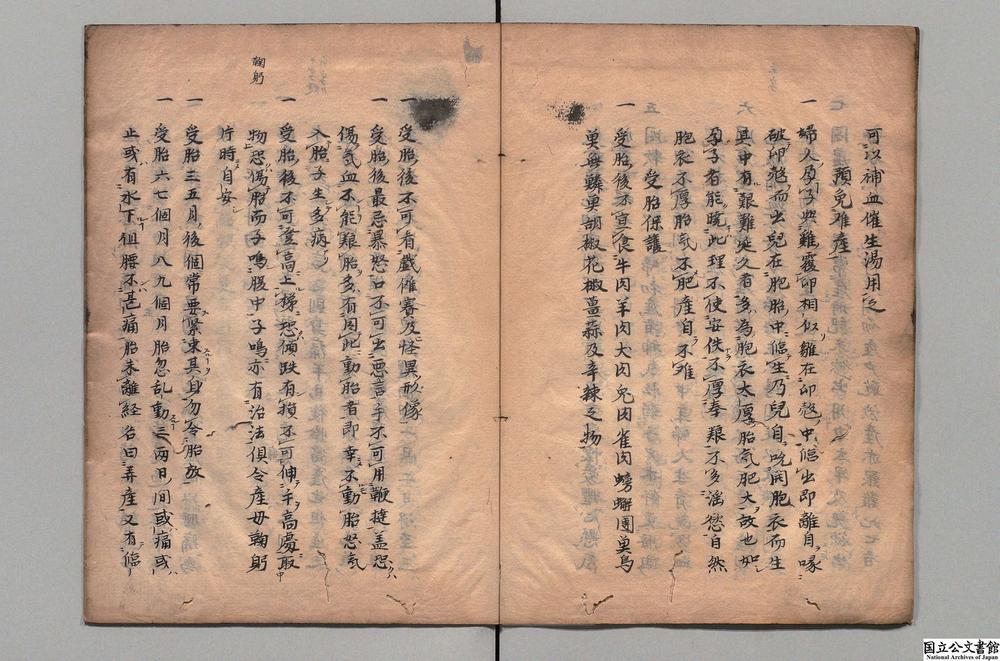 可以補血催生湯用之
預免難産
一 婦人孕子与雞覆卵相似雛在卵殼中臨出即離自喙
破卵殼而出兒在胞胎中臨生乃兒自咬開胞衣而生
其中有艱難延久者多為胞衣太厚胎気肥大故也如
孕子者能暁此理不使安佚不厚奉養不多淫慾自然
胞衣不厚胎気不肥産自不难
受胎保護
一 受胎後不宜食牛肉羊肉犬肉兎肉雀肉螃蟹團魚烏
魚無鱗魚胡椒花椒薑蒜及辛辣之物
一 受胎後不可看戯傩賽及怪異形像
一 受胎後最忌暴怒口不可出悪言手不可用鞭撻盖恐
傷気血不能養胎多有因此動胎者即幸不動胎怒気
入胎子生多病
一 受胎後不可登高上梯恐傾跌有損不可伸手高處取
物恐傷胎而子鳴腹中子鳴亦有治法俱令産母鞠躬
片時自安
鞠躬
一 受胎三五月後個常要緊束其身勿令胎放
一 受胎六七個月八九個月胎忽乱動三両日間或痛或
止或有水下但腰不甚痛胎未離経名曰弄産又有臨
国立公文書館
National Archives of Japan